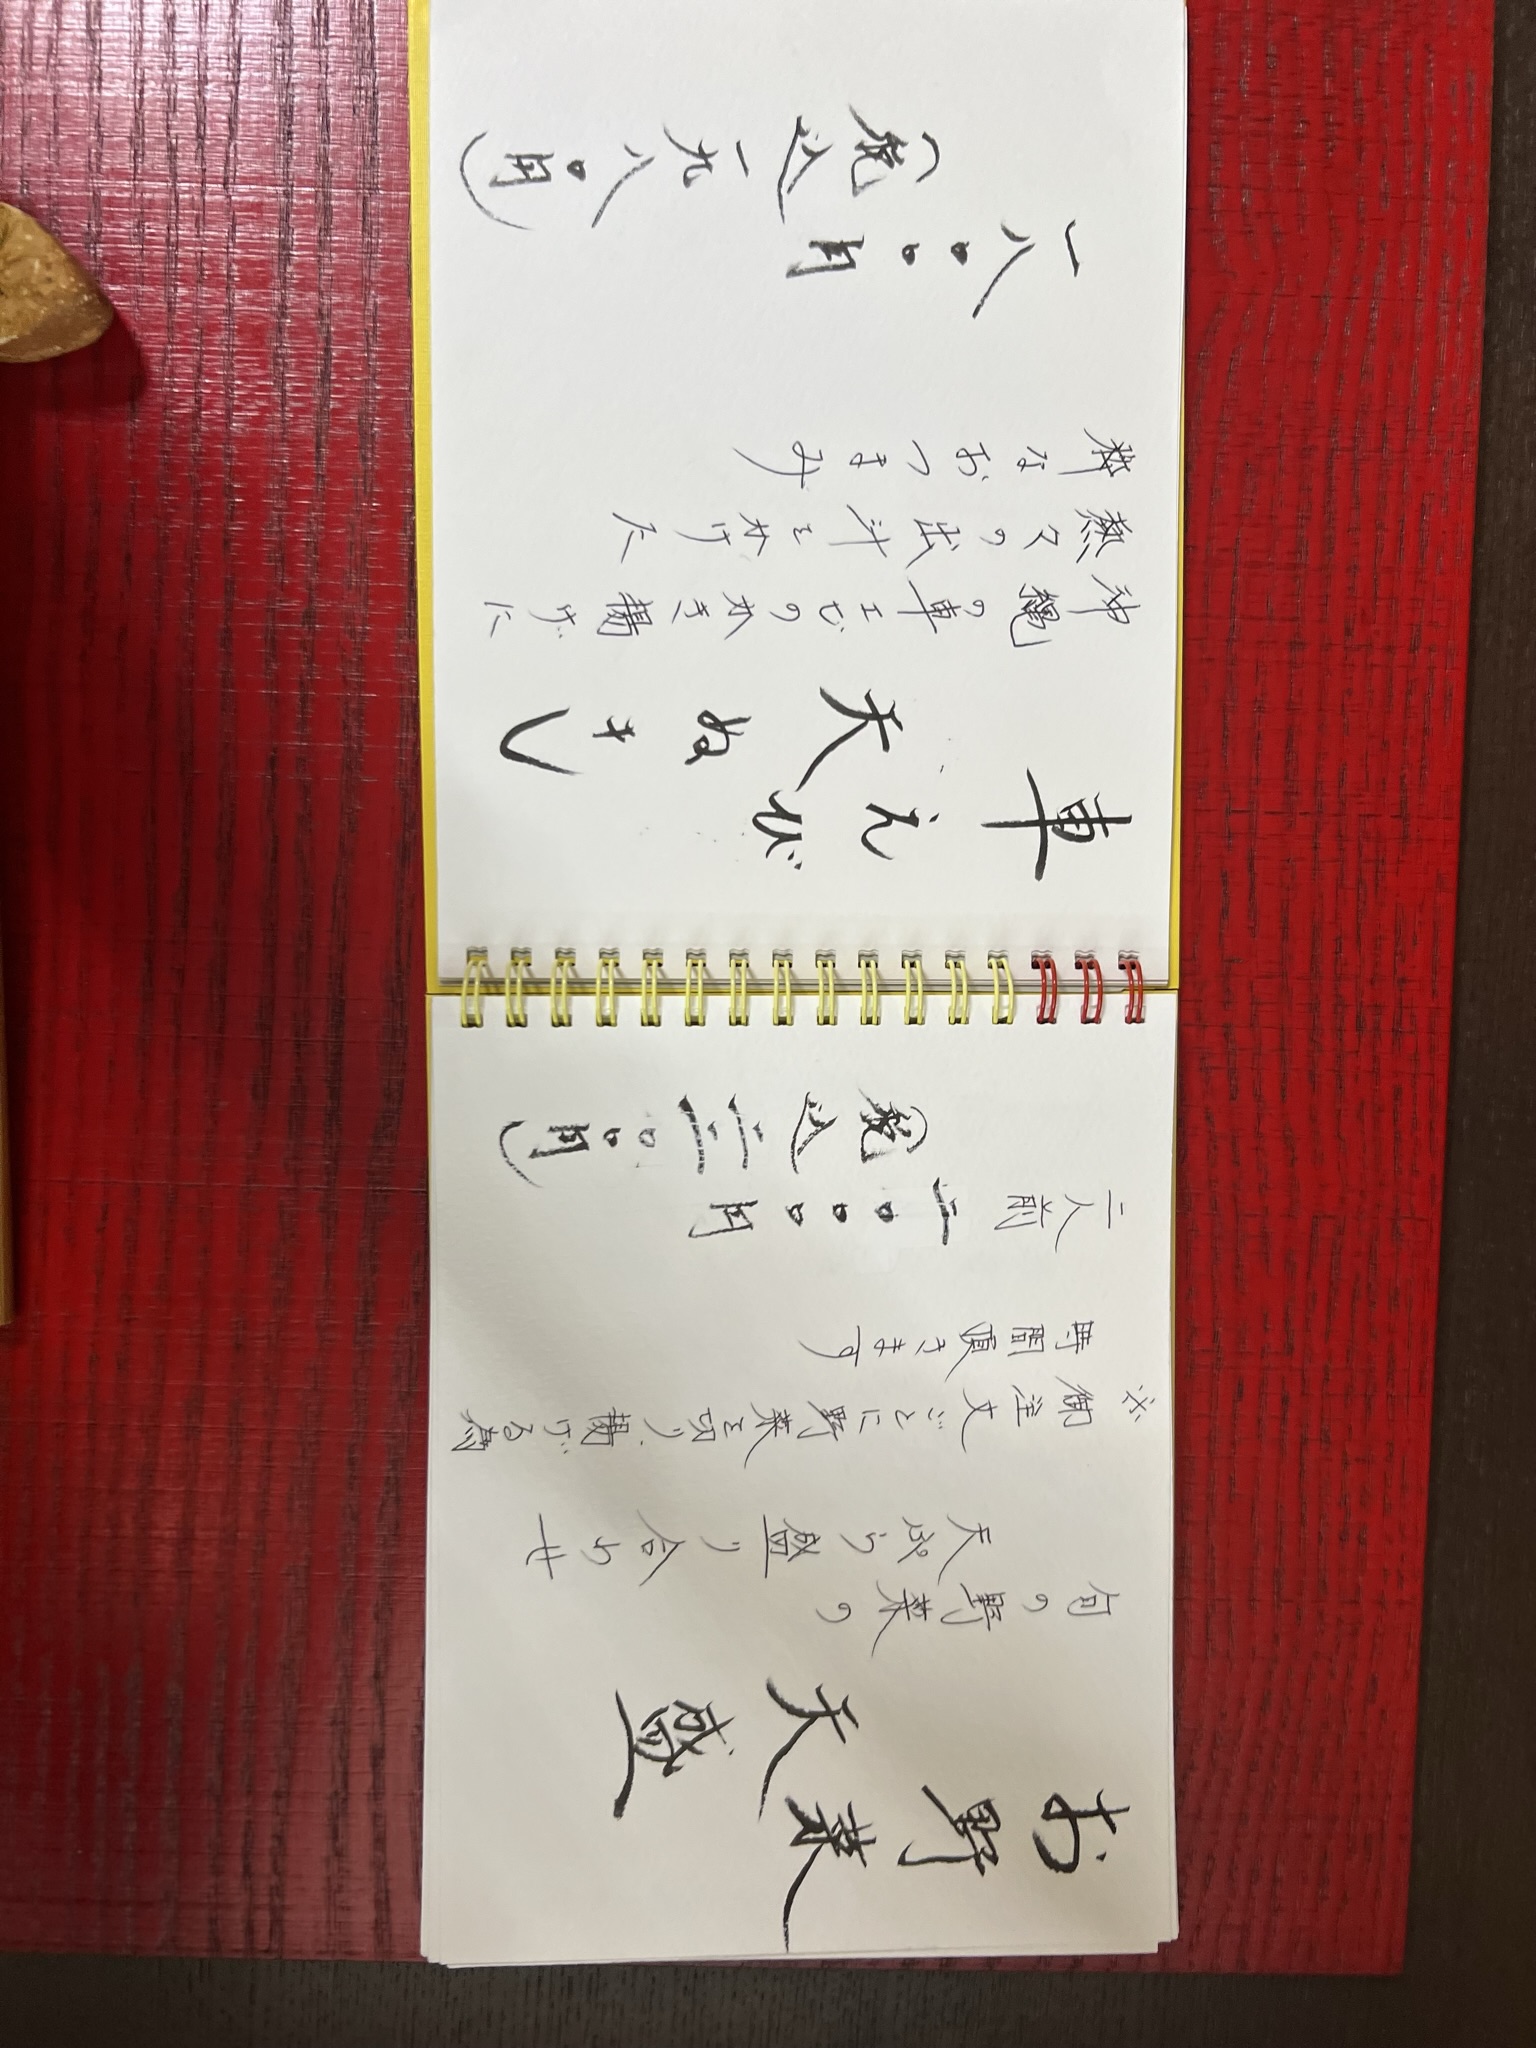 お野菜
天盛
旬の野菜の
天ぷら盛り合わせ
※御注文ごとに野菜を切り、揚げる為
時間頂きます
二人前 二〇〇〇円
(税込二二〇〇円)
車えび
天ぬき
沖縄の車エビのかき揚げに
熱々の出汁をかけた
粋なおつまみ
一八〇〇円
(税込一九八〇円)